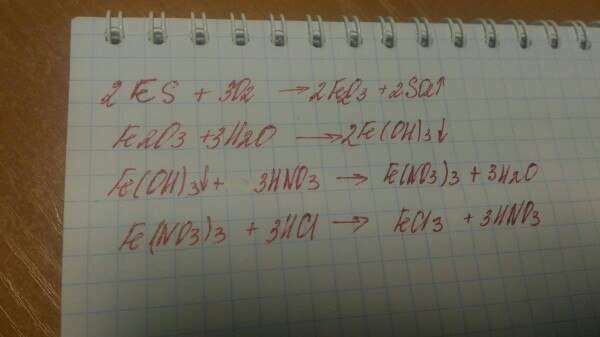 2 FeS + 3O2 → 2FeO3 + 2SO2↑
Fe2O3 + 3H2O → 2Fe(OH)3↓
Fe(OH)3↓ + 3HNO3 → Fe(NO3)3 + 3H2O
Fe(NO3)3 + 3HCl → FeCl3 + 3HNO3